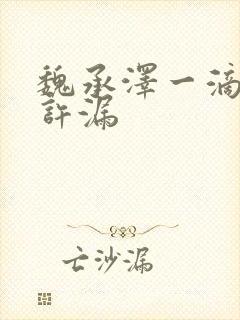 魏承澤一滴
許漏
亡沙漏